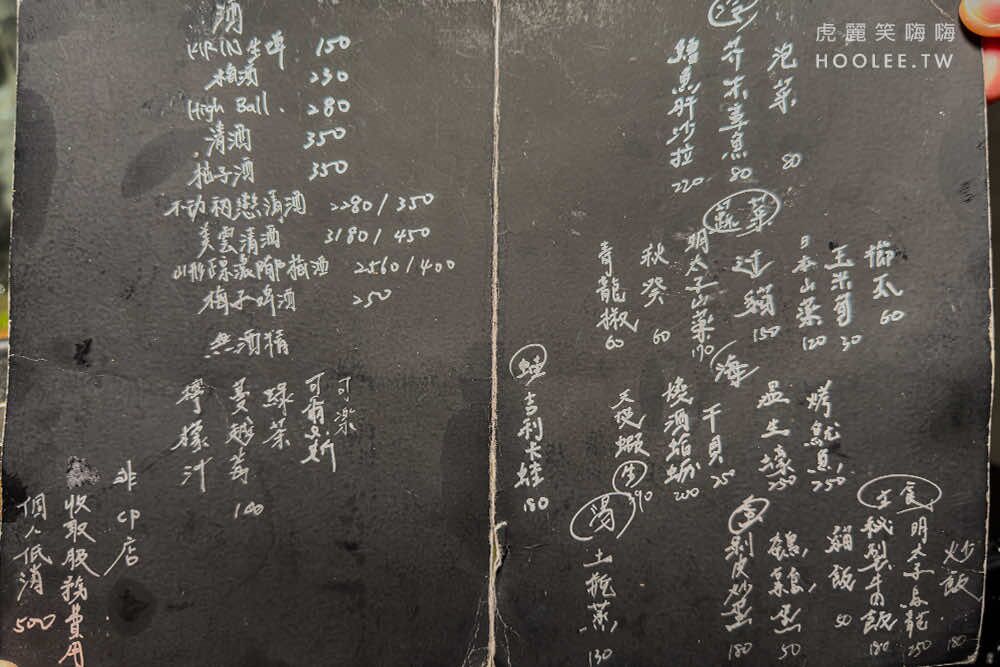 虎麗笑嗨嗨
HOOLEE.TW
酒
KIRIN生啤 150
梅酒 230
High Ball 280
清酒 350
柚子酒 350
不动初戀清酒 2280/350
美雲清酒 3180/450
2560/400
梅子啤酒 250
無酒精
可樂
可爾必斯
綠茶
蔓越莓 100
檸檬汁
非CP店
收取服務費用
個人低消 500
泡菜 80
芥末章魚 80
鱈魚肝沙拉 220
蔬菜
櫛瓜 60
玉米筍 30
日本山藥 120
过貓 150
明太子山藥 170
秋葵 60
青龍椒 60
海
烤魷魚 250
温生蠔 250
干貝 25
燒酒蛤蜊 200
天使蝦
蛙
吉利卡蛙 180
食
炒飯 180
明太子烏龍 250
秘製牛肉飯 180
貓飯 50
鵪鶉蛋 50
剝皮炒蛋 180
湯
土瓶蒸 130